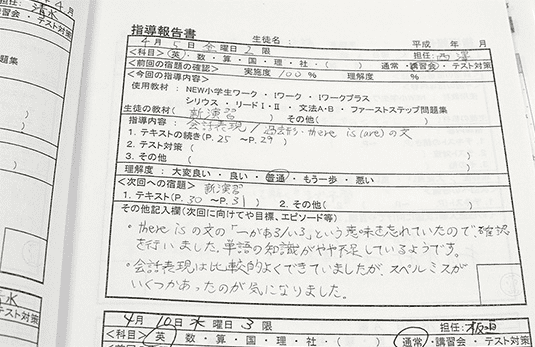 指導報告書
生徒名: 平成 年 月
4月 5日 金曜日 2限 担任:
<科目> 英・数・算・国・理・社・( ) 通常・講習会・テスト対策
<前回の宿題の確認> 実施度 100 % 理解度 %
<今回の指導内容>
使用教材: NEW小学生ワーク・iワーク・iワークプラス
シリウス・リードⅠ・Ⅱ・文法A・B・ファーストステップ問題集
生徒の教材( 新演習 ) その他( )
指導内容: 会話表現 / 過去形・there is (are) の文
1. テキストの続き(P. 25 ~P. 29 )
2. テスト対策( )
3. その他( )
理解度: 大変良い・良い・普通・もう一歩・悪い
<次回への宿題> 新演習
1. テキスト(P. 30 ~P. 31 ) 2. その他( )
その他記入欄(次回に向けてや目標、エピソード等)
・there is の文の「〜がある/いる」という意味を忘れていたので確認
を行いました。単語の知識がやや不足しているようです。
・会話表現は比較的よくできていましたが、スペルミスが
いくつかあったのが気になりました。
4月 10日 水曜日 3限 担任:
<科目> 英・数・算・国・理・社・( ) 通常・講習会・テスト対策